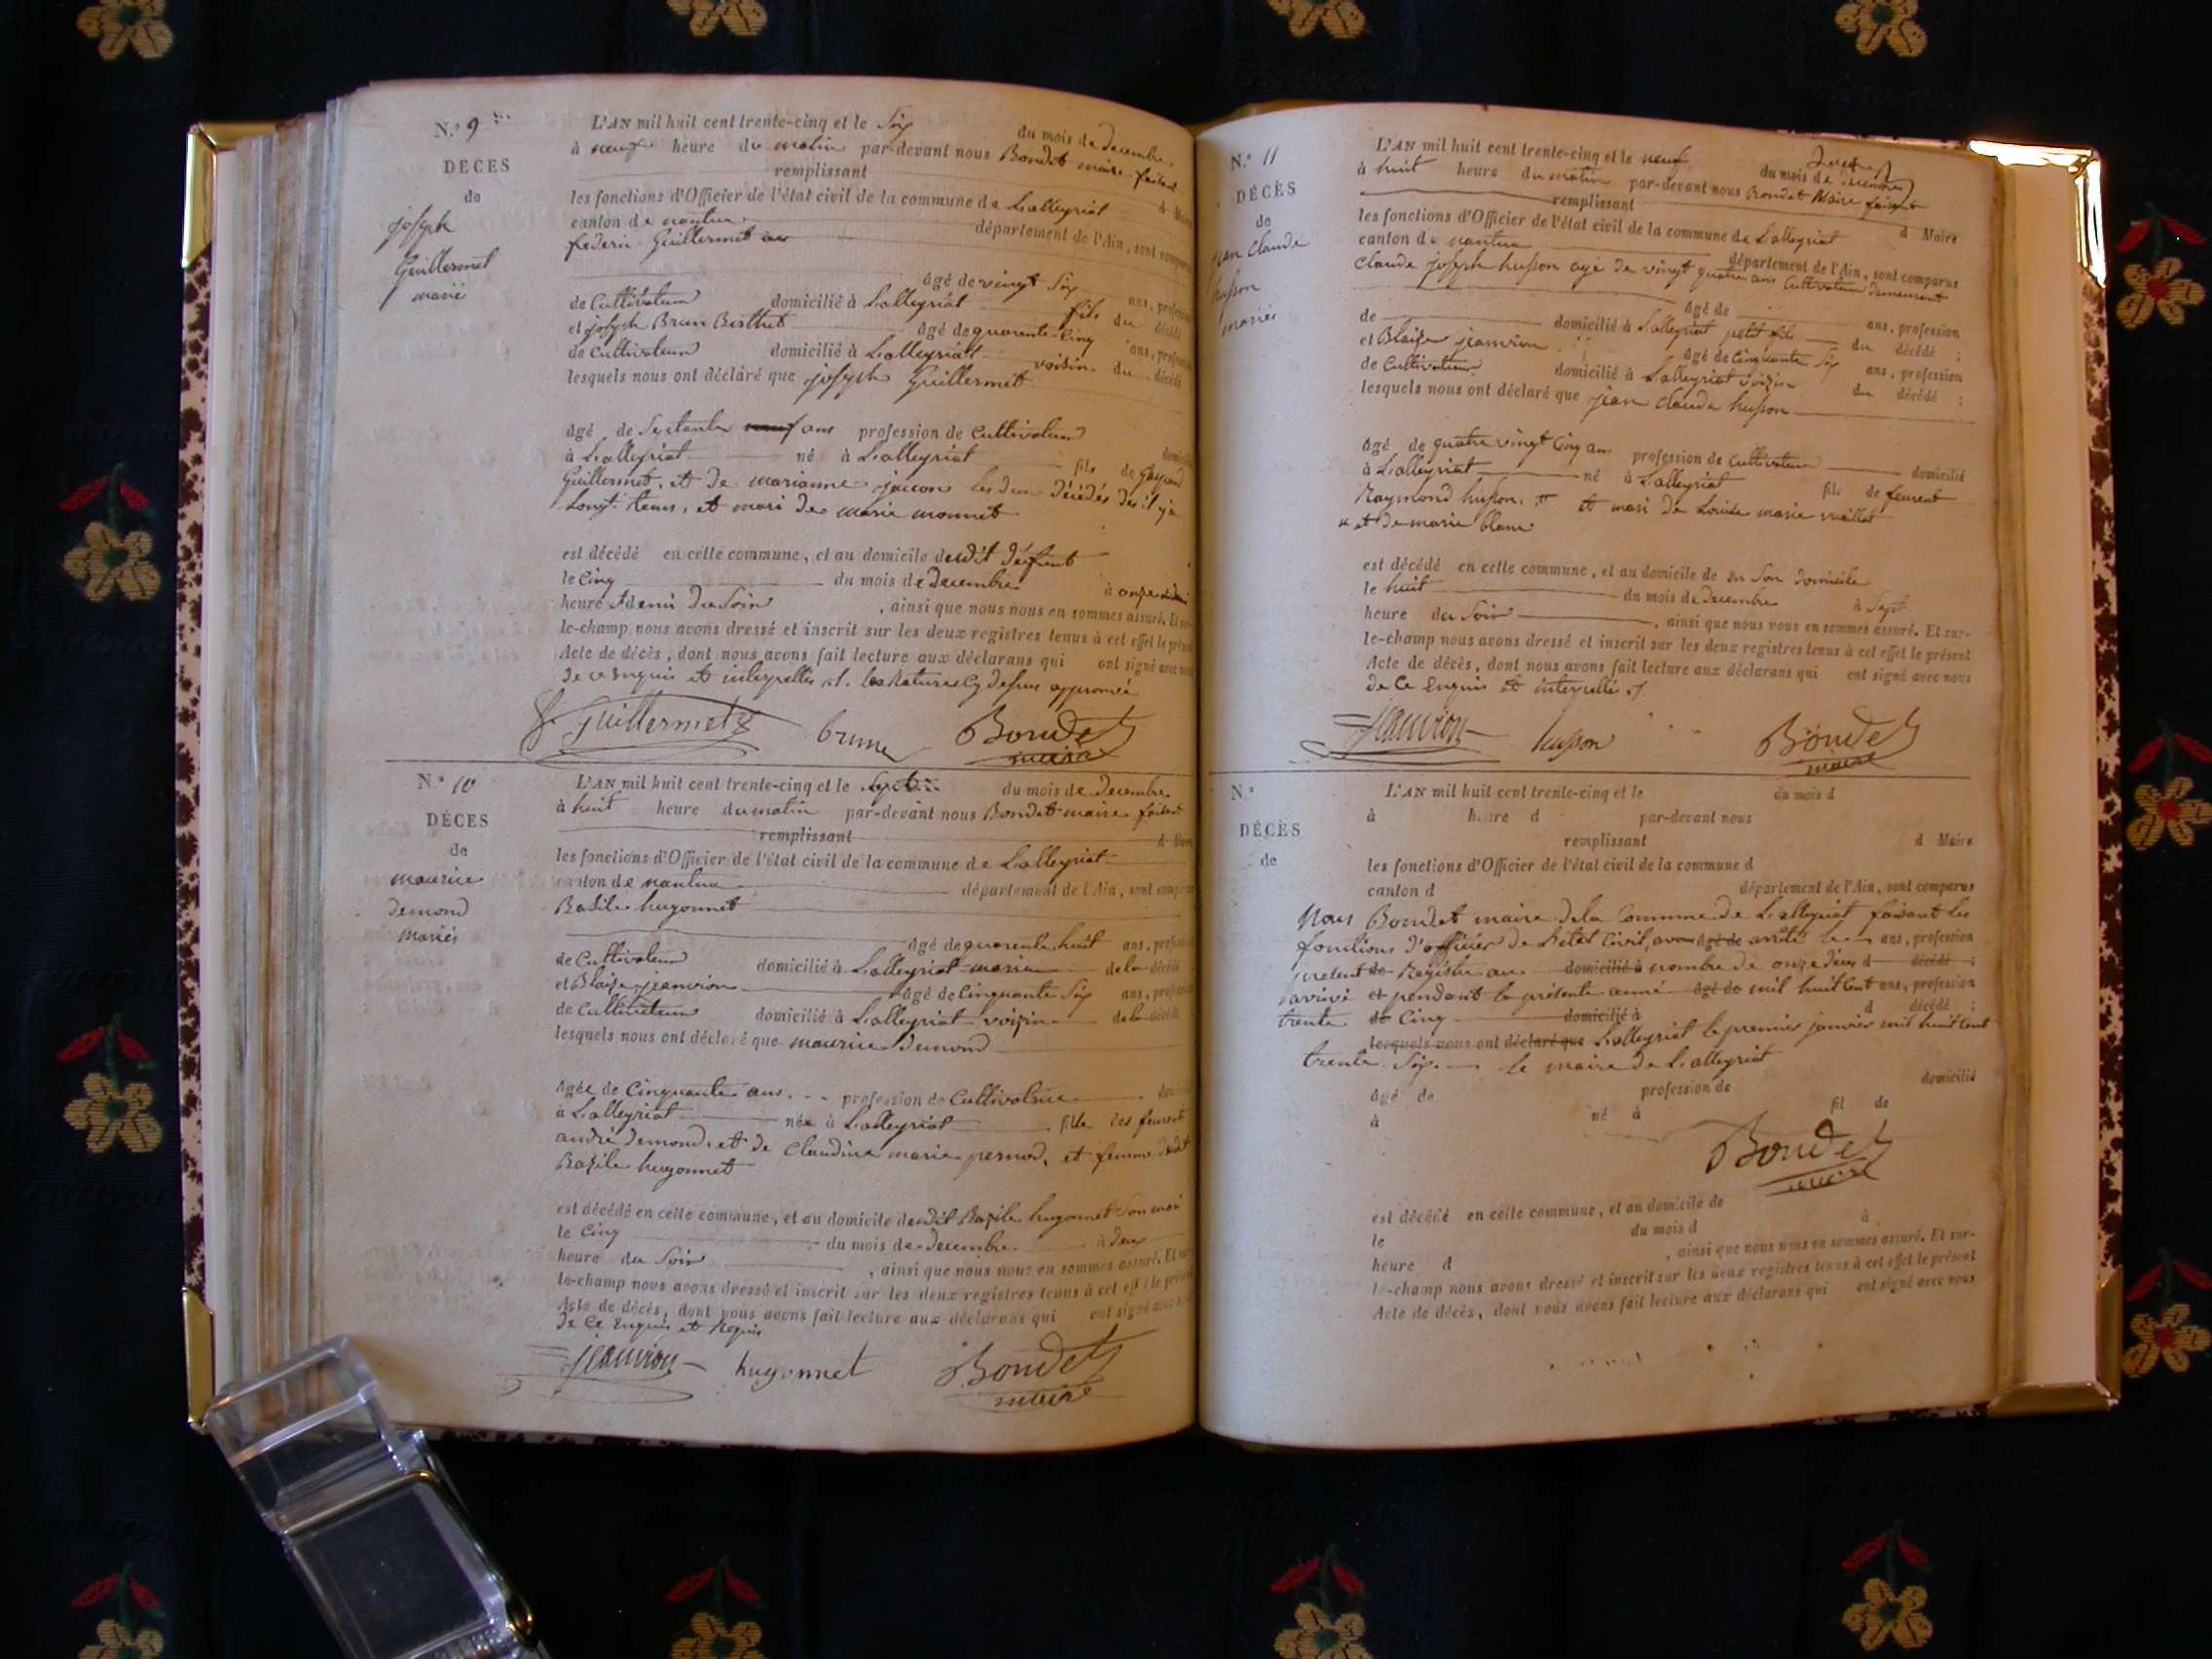 N.º 9
DÉCES
de
joseph
Guillermet
marié
L'AN mil huit cent trente-cinq et le Six du mois de decembre
à neuf heure du matin par-devant nous Bondet maire faisant
remplissant
les fonctions d'Officier de l'état civil de la commune de Lalleyriat d Maire
canton de nantua département de l'Ain, sont comparus
federic Guillermet
âgé de vingt Six ans, profession
de Cultivateur domicilié à Lalleyriat fils du décédé
et joseph Brun Berthet âgé de quarente Cinq ans, profession
de Cultivateur domicilié à Lalleyriat voisin du décédé
lesquels nous ont déclaré que joseph Guillermet
âgé de Septante neuf ans profession de Cultivateur
à Lalleyriat né à Lalleyriat fils de Gaspard
Guillermet, et de marianne les deux décédés des il y a
Long tems, et mari de marie monnet
est décédé en cette commune, et au domicile dudit défunt
le Cinq du mois de Decembre à onze
heure et demi du Soir, ainsi que nous nous en sommes assuré. Et sur-
le-champ nous avons dressé et inscrit sur les deux registres tenus à cet effet le présent
Acte de décès, dont nous avons fait lecture aux déclarans qui ont signé avec nous
de ce enquis et interpellés Les Ratures Cy dessus approuvée
f. Guillermet brun Bondet
maire
N.º 10
DÉCES
de
maurice
demond
mariés
L'AN mil huit cent trente-cinq et le Sept du mois de Decembre
à huit heure du matin par-devant nous Bondet maire faisant
remplissant d Maire
les fonctions d'Officier de l'état civil de la commune de Lalleyriat
canton de nantua département de l'Ain, sont comparus
Basile hugonnet
âgé de quarente huit ans, profession
de Cultivateur domicilié à Lalleyriat mari de la décédé
et Blaise jeanvion âgé de Cinquante Six ans, profession
de Cultivateur domicilié à Lalleyriat voisin de la décédé
lesquels nous ont déclaré que maurice Demond
âgée de Cinquante ans profession de Cultivatrice
à Lalleyriat née à Lalleyriat fille des feurent
andré demond, et de Claudine marie pernod, et femme dudit
Bazile hugonnet
est décédé en cette commune, et au domicile dudit Bazile hugonnet son mari
le Cinq du mois de Decembre à deux
heure du Soir, ainsi que nous nous en sommes assuré. Et sur-
le-champ nous avons dressé et inscrit sur les deux registres tenus à cet effet le présent
Acte de décès, dont nous avons fait lecture aux déclarans qui ont signé avec nous
de Ce Enquis et Requis
jeanvion hugonnet Bondet
maire
N.º 11
DÉCÈS
de
jean claude
husson
mariés
L'AN mil huit cent trente-cinq et le neuf du mois de decembre
à huit heure du matin par-devant nous Bondet Maire faisant
remplissant
les fonctions d'Officier de l'état civil de la commune de Lalleyriat d Maire
canton de nantua département de l'Ain, sont comparus
Claude joseph husson agé de vingt quatre ans Cultivateur demeurant
âgé de ans, profession
de domicilié à Lalleyriat petit fils du décédé ;
et Blaise jeanvion âgé de Cinquante Six ans, profession
de Cultivateur domicilié à Lalleyriat voisin du décédé ;
lesquels nous ont déclaré que jean Claude husson
âgé de quatre vingt Cinq ans profession de Cultivateur domicilié
à Lalleyriat né à Lalleyriat fils de feurent
Raymond husson, et mari de Louise marie vuaillat
et de marie blanc
est décédé en cette commune, et au domicile de en Son domicile
le huit du mois de Decembre à Sept
heure du Soir, ainsi que nous nous en sommes assuré. Et sur-
le-champ nous avons dressé et inscrit sur les deux registres tenus à cet effet le présent
Acte de décès, dont nous avons fait lecture aux déclarans qui ont signé avec nous
de Ce Enquis et interpellé
jeanvion husson Bondet
maire
N.º
DÉCÈS
de
L'AN mil huit cent trente-cinq et le du mois d
à heure d par-devant nous
remplissant d Maire
les fonctions d'Officier de l'état civil de la commune d
canton d département de l'Ain, sont comparus
Nous Bondet maire dela Commune de Lalleyriat faisant les
fonctions d'officier de l'etat Civil, avons âgé de arrêté le ans, profession
present de Registre au domicilié à nombre de onze deces d décédé ;
arrivé et pendant la présente année âgé de mil huit Cent ans, profession
trente de Cinq domicilié à d décédé ;
lesquels nous ont déclaré que Lalleyriat le premier janvier mil huit cent
trente Six. le maire de Lalleyriat
âgé de profession de domicilié
à né à fil de
Bondet
maire
est décédé en cette commune, et au domicile de
le du mois d à
heure d, ainsi que nous nous en sommes assuré. Et sur-
le-champ nous avons dressé et inscrit sur les deux registres tenus à cet effet le présent
Acte de décès, dont nous avons fait lecture aux déclarans qui ont signé avec nous